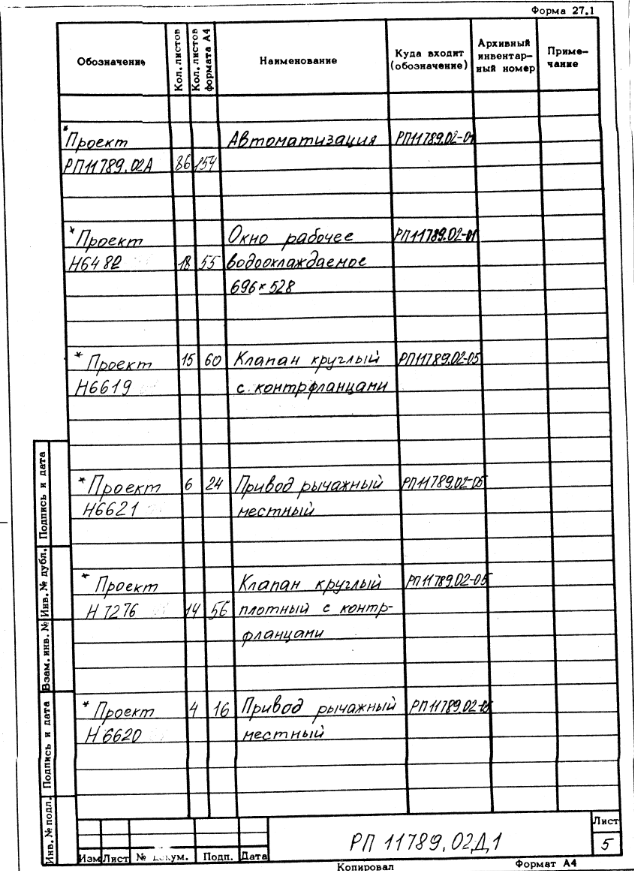 Форма 27.1
Обозначение Кол. листов Кол. листов формата А4 Наименование Куда входит (обозначение) Архивный инвентарный номер Примечание
*Проект Автоматизация РП11789.02-01
РП11789.02А 86 154
*Проект Окно рабочее РП11789.02-01
Н6482 18 55 водоохлаждаемое
696×528
*Проект 15 60 Клапан круглый РП11789.02-05
Н6619 с контрфланцами
*Проект 6 24 Привод рычажный РП11789.02-05
Н6621 местный
*Проект Клапан круглый РП11789.02-05
Н7276 14 56 плотный с контр-
фланцами
*Проект 4 16 Привод рычажный РП11789.02-05
Н6620 местный
Инв. № подл. Подпись и дата Взам. инв. № Инв. № дубл. Подпись и дата
РП 11789.02Д1
Лист
5
Изм Лист № докум. Подп. Дата
Копировал Формат А4